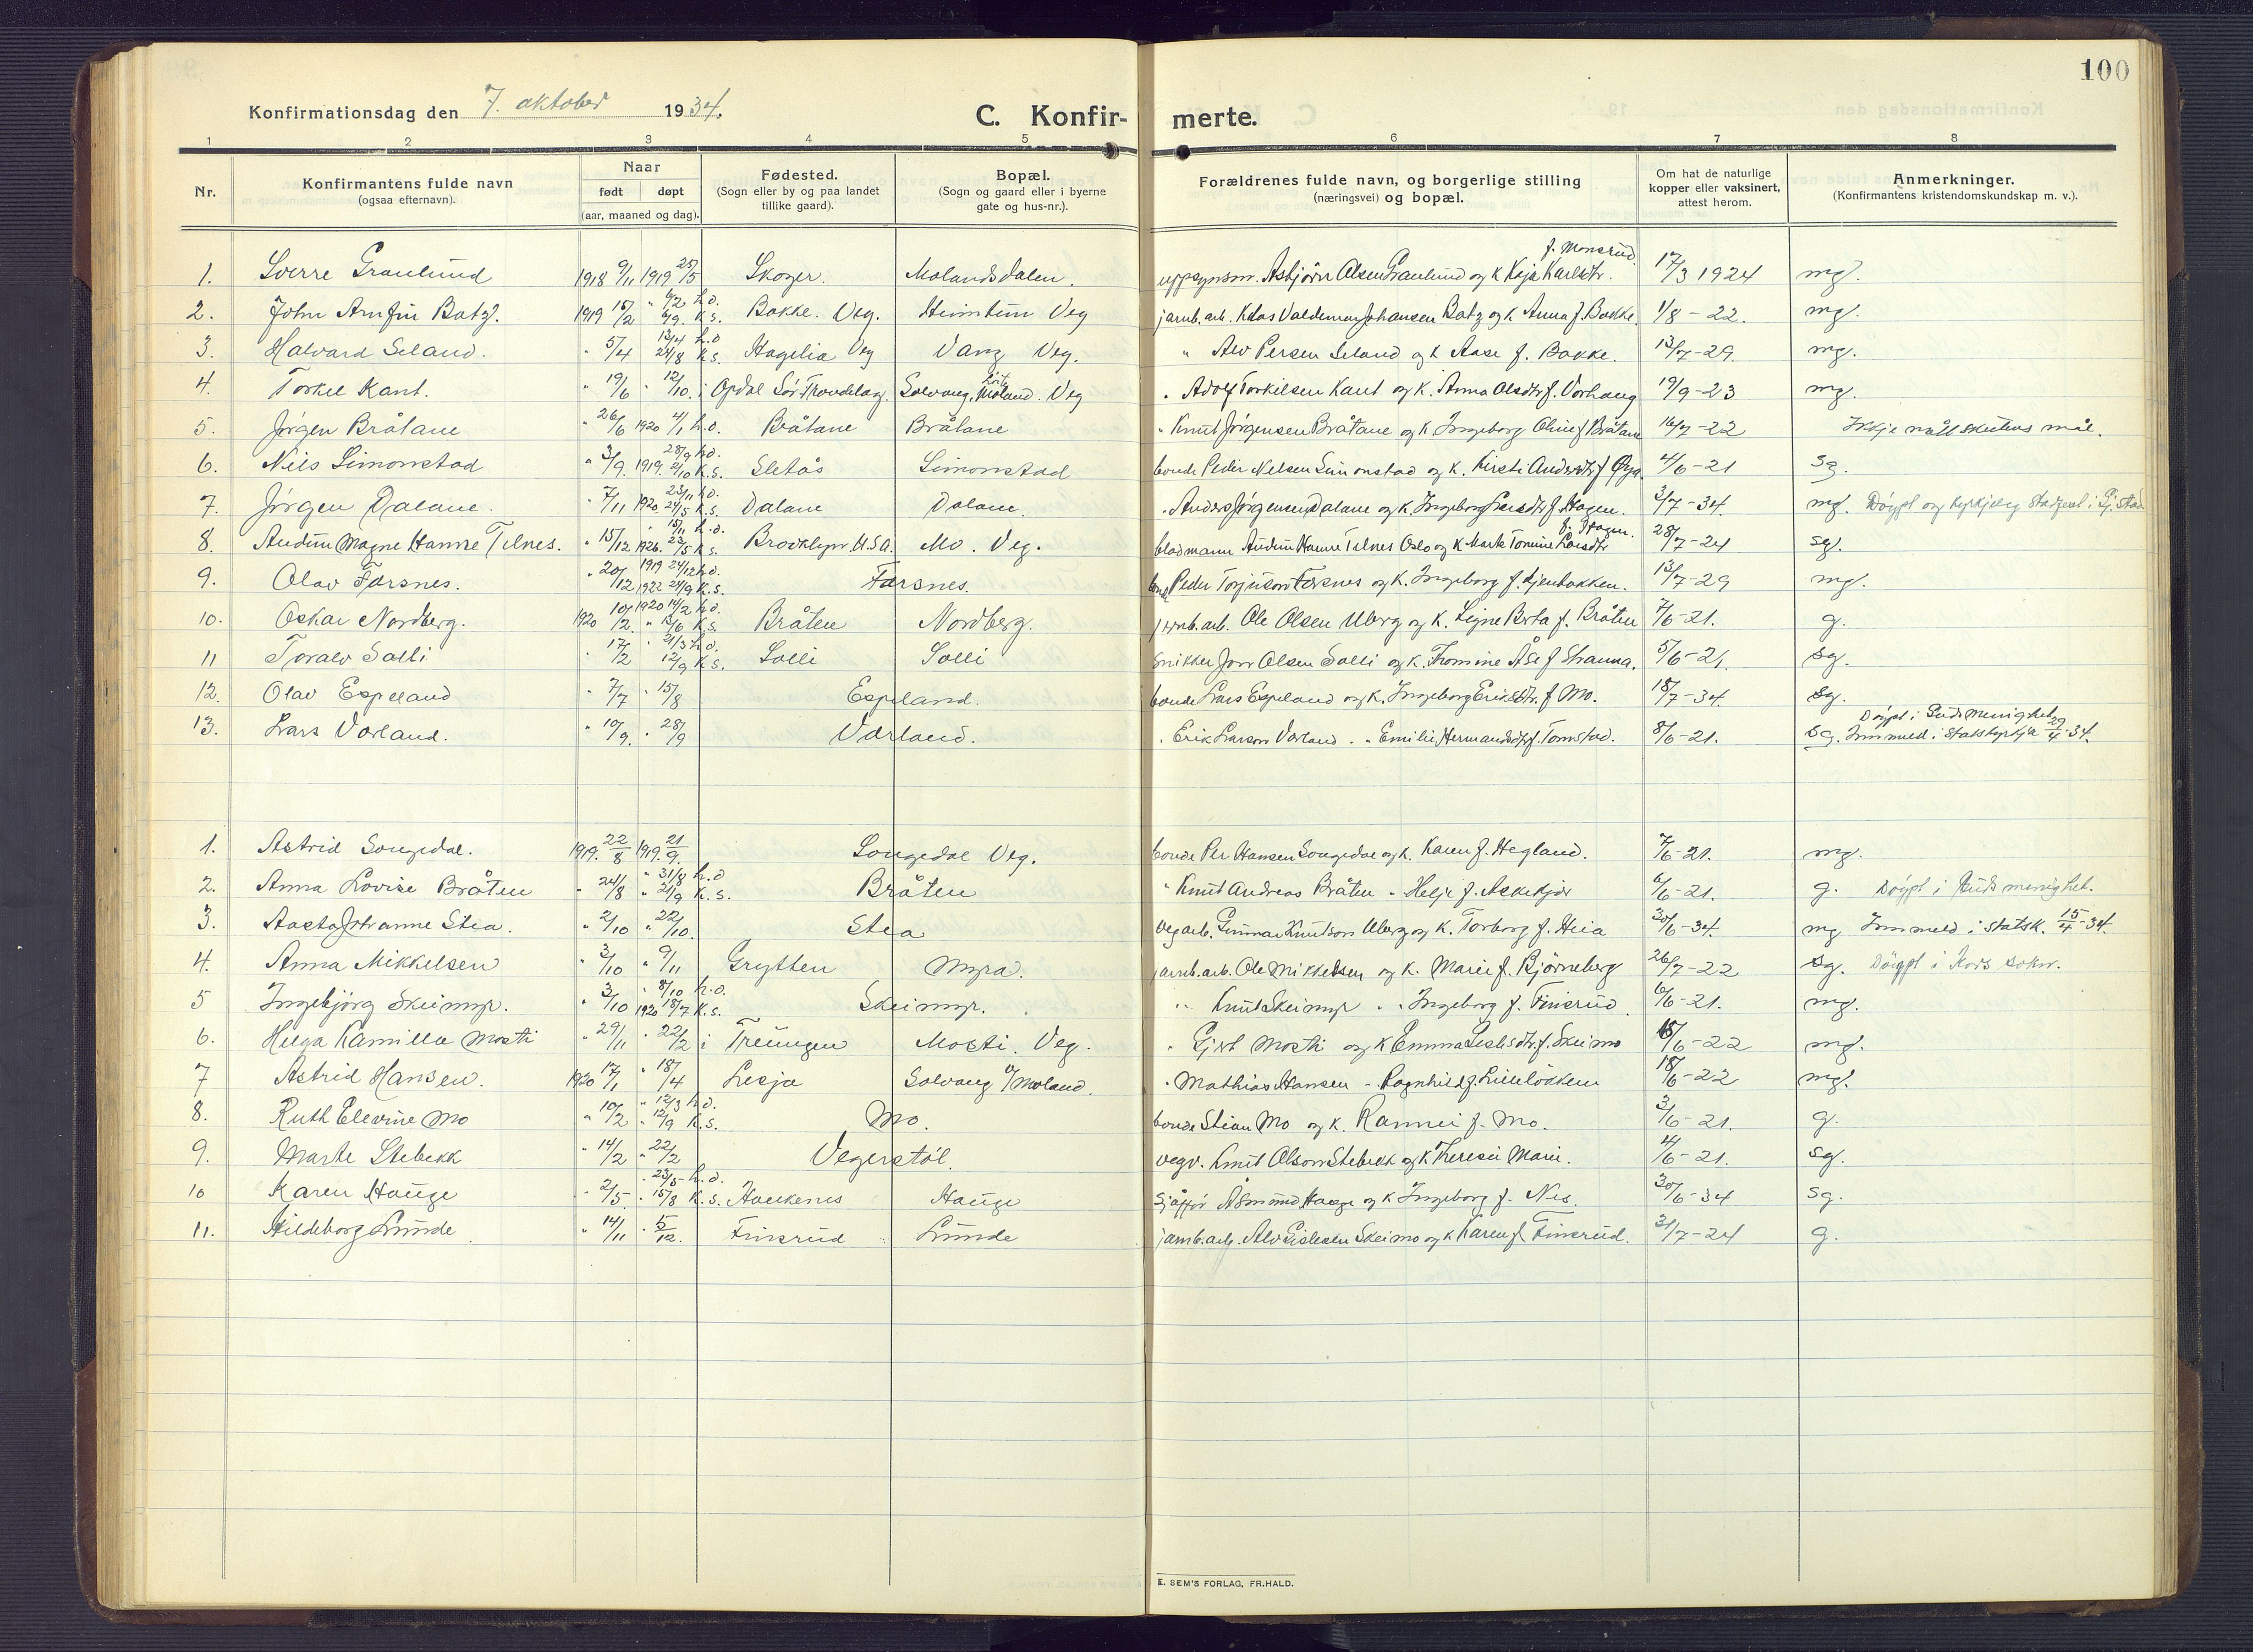 100
Konfirmationsdag den 7. oktober 1934.
C. Konfir- merte.
1 2 3 4 5 6 7 8
Nr.
Konfirmantens fulde navn
(ogsaa efternavn).
Naar
født døpt
(aar, maaned og dag).
Fødested.
(Sogn eller by og paa landet
tillike gaard).
Bopæl.
(Sogn og gaard eller i byerne
gate og hus-nr.).
Forældrenes fulde navn, og borgerlige stilling
(næringsvei) og bopæl.
Om hat de naturlige
kopper eller vaksinert,
attest herom.
Anmerkninger.
(Konfirmantens kristendomskundskap m. v.).
f. Monsrud
1. Sverre Granlund 1918 9/11 1919 25/5 Skoger. Molandsdalen. uppsynsm. Asbjörn Olsen Granlund og k Kaja Karlsdtr. 17/3 1924 mg.
6/2 h.d.
2. John Arnfin Batz. 1919 15/2 " 6/9. k.s. Bakke. Veg. Heimtun Veg jarnb.arb. Klas Valdemar Johansen Batz og k Anna f. Bakke. 1/8 - 22. mg.
13/4 h.d
3. Halvard Seland. " 5/4 24/8 k.s. Hagelia Veg Vang Veg. " Alv Persen Seland og k Aase f. Bakke. 13/7-29. mg.
4. Torkel Kant. " 19/6 " 12/10. i Opdal Sör-Trondelag. Solvang, Moland. Veg " Adolf Torkilsen Kant og k. Anna Olsdtr f. Vorhaug 19/9-23 mg.
5. Jörgen Bråtane " 26/6 1920 4/1 h.d. Bråtane Bråtane " Knut Jörgensen Bråtane og k. Ingeborg Oline f Bråtane 16/7-22 Ikkje nått skulens mål.
28/9 h.d.
6. Nils Simonstad " 3/9. 1919. 2/10 k.s. Sletås Simonstad bonde Peder Nelsen Simonstad og k. Kirsti Andersdtr f Öyg. 4/6-21 sg.
23/11 h.d.
7. Jörgen Dalane. " 7/11 1920 24/5 k.s. Dalane Dalane. " Anders Jörgensen Dalane og k. Ingeborg Larsdtr f. Hagen. 3/7-34. mg. Döypt og kyrkjeleg stadfest i Gj.stad.
15/11 h.d. f. Hagen.
8. Audun Magne Hanne Telnes. " 15/12 1926. 23/5 k.s. Brooklyn U.S.A. Mo. Veg. bladmann Audun Hanne Telnes Oslo og k Marte Tomine Larsdtr 28/7-24 sg.
1919 24/12 h.d.
9. Olav Forsnes. " 20/12 1922 24/9 k.s. Forsnes. bonde Peder Torjuson Forsnes og k. Ingeborg f. Kjenbakken. 13/7-29 mg.
1920 14/2 h.d.
10. Oskar Nordberg. 1920 10/2. " 13/6 k.s. Bråten Nordberg. jernb.arb. Ole Olsen Uberg og k. Signe Berta f. Bråten 7/6-21. g.
21/3 h.d.
11 Toralv Solli " 17/2 12/9 k.s. Solli Solli snikker Jorr Olsen Solli og k. Tromine Åse f Strauma. 5/6-21. sg.
12. Olav Espeland " 7/7 " 15/8 Espeland. bonde Lars Espeland og k. Ingeborg Eriksdtr. f Mo. 18/7-34. sg.
Döypt i Guds Menighet.
13. Lars Vorland. " 10/9. " 28/9 Vorland. " Erik Larson Vorland. " " Emilie Hermandsdtr f. Tomstad. 8/6-21. sg. Innmeld i statskyrkja 29/4-34.
1. Astrid Songedal. 1919. 22/8 1919. 21/9. Songedal Veg. bonde Per Hansen Songedal og k. Karen f. Hegland. 7/6-21. mg.
31/8 h.d
2. Anna Lovise Bråten " 24/8 " 21/9 k.s. Bråten " Knut Andreas Bråten " Helje f. Askekjer 6/6-21. g. Döypt i Guds menighet.
3. Aasta Johanne Stea. " 2/10 " 22/10. Stea vegarb. Gunnar Knutson Uberg og k. Torborg f. Heia 30/6-34. mg Innmeld i statsk. 15/4-34.
4. Anna Mikkelsen " 3/10 " 9/11 Grytten Myra. jarnb.arb. Ole Mikkelsen og k. Marie f. Bjørneberg 26/7-22 sg. Döypt i Kors sokn.
8/10 h.d.
5 Ingebjörg Skeimyr. " 3/10 1920 18/7 k.s. Skeimyr. " " Knut Skeimyr " " Ingeborg f. Finsrud. 6/6-21. mg.
6. Helga Kamilla Mosti " 29/11 " 22/2 i Treungen Mosti. Veg. " Gjert Mosti og k Emma Gislesdtr. f. Skeimo 15/6-22 mg.
7 Astrid Hansen. 1920 17/1 " 18/4 Lesja Solvang v/Moland. " Mathias Hansen - Ragnhild f. Lillelökken 18/6-22 mg.
12/3 h.d.
8. Ruth Elevine Mo " 10/2 " 12/9 k.s. Mo. bonde Stian Mo og k. Rannei f. Mo. 3/6-21. g.
9. Marte Stebekk " 14/2 " 22/2 Vegerstöl. vegv. Knut Olson Stebekk og k Teresie Marie. 4/6-21. sg.
23/5 h.d.
10 Karen Hauge " 2/5. " 15/8 k.s. Haukenes Hauge sjåffør Åsmund Hauge og k Ingeborg f. Nes. 30/6-34 sg.
11. Hildeborg Lunde " 14/11 " 5/12. Finsrud Lunde jarnb.arb. Alv Gislesen Skeimo og k Karen f. Finsrud. 31/7-24 g.
E. SEM'S FORLAG, FR.HALD.